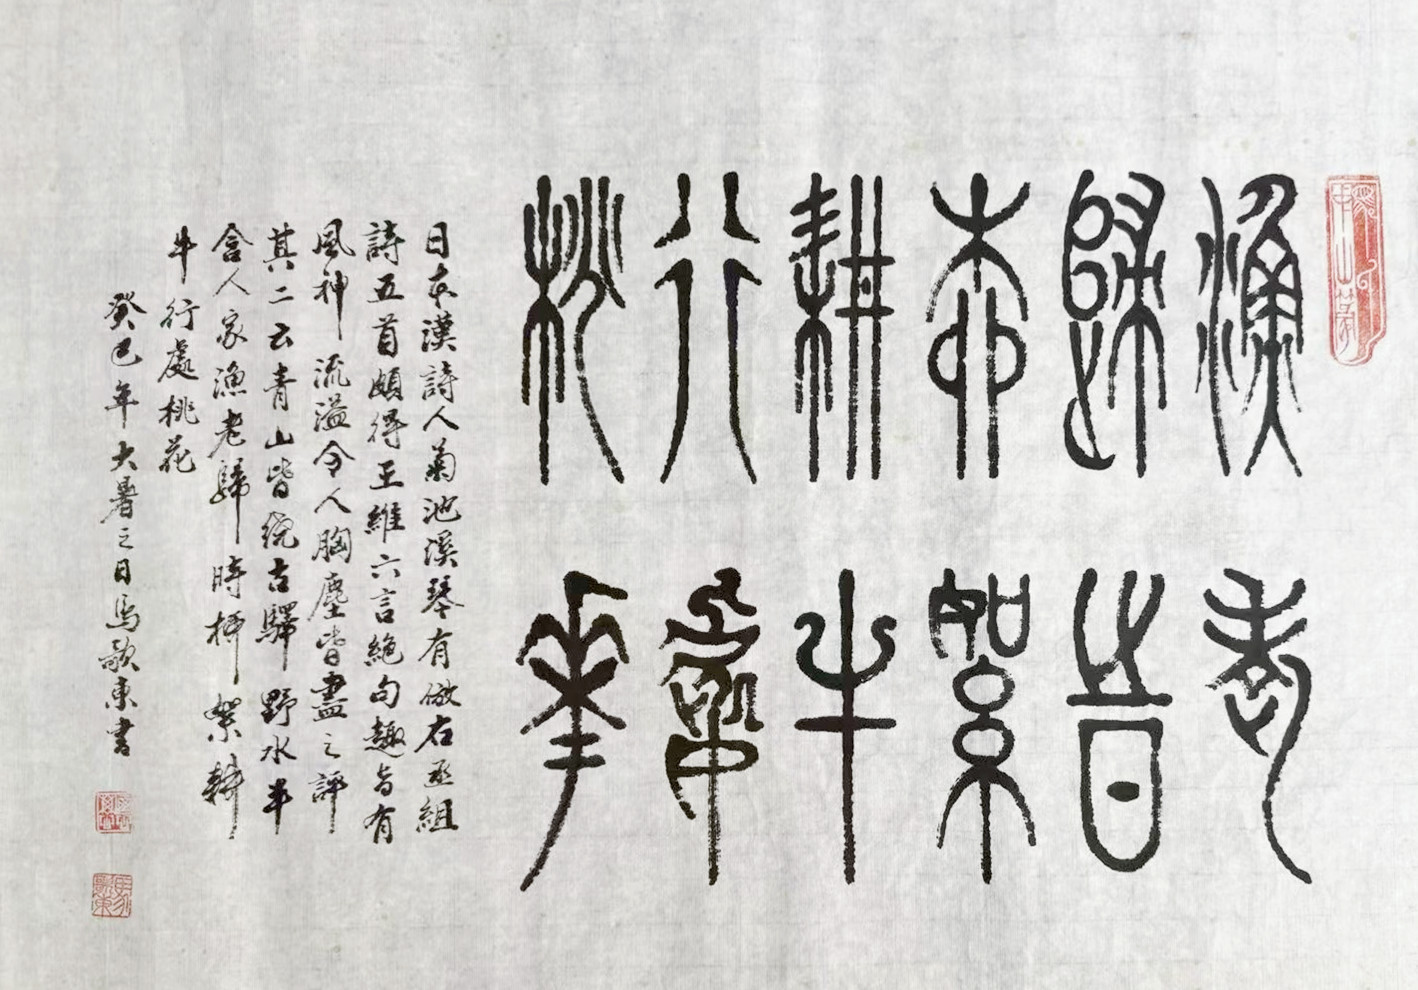 漁老
歸旹
桺絮
耕牛
行處
桃華
日本漢詩人菊池溪琴有倣右丞組
詩五首頗得王維六言絕句趣旨有
風神流溢令人胸塵皆盡之評
其二云青山皆繞古驛野水半
含人家漁老歸時柳絮耕
牛行處桃花
癸巳年大暑之日馬歌東書